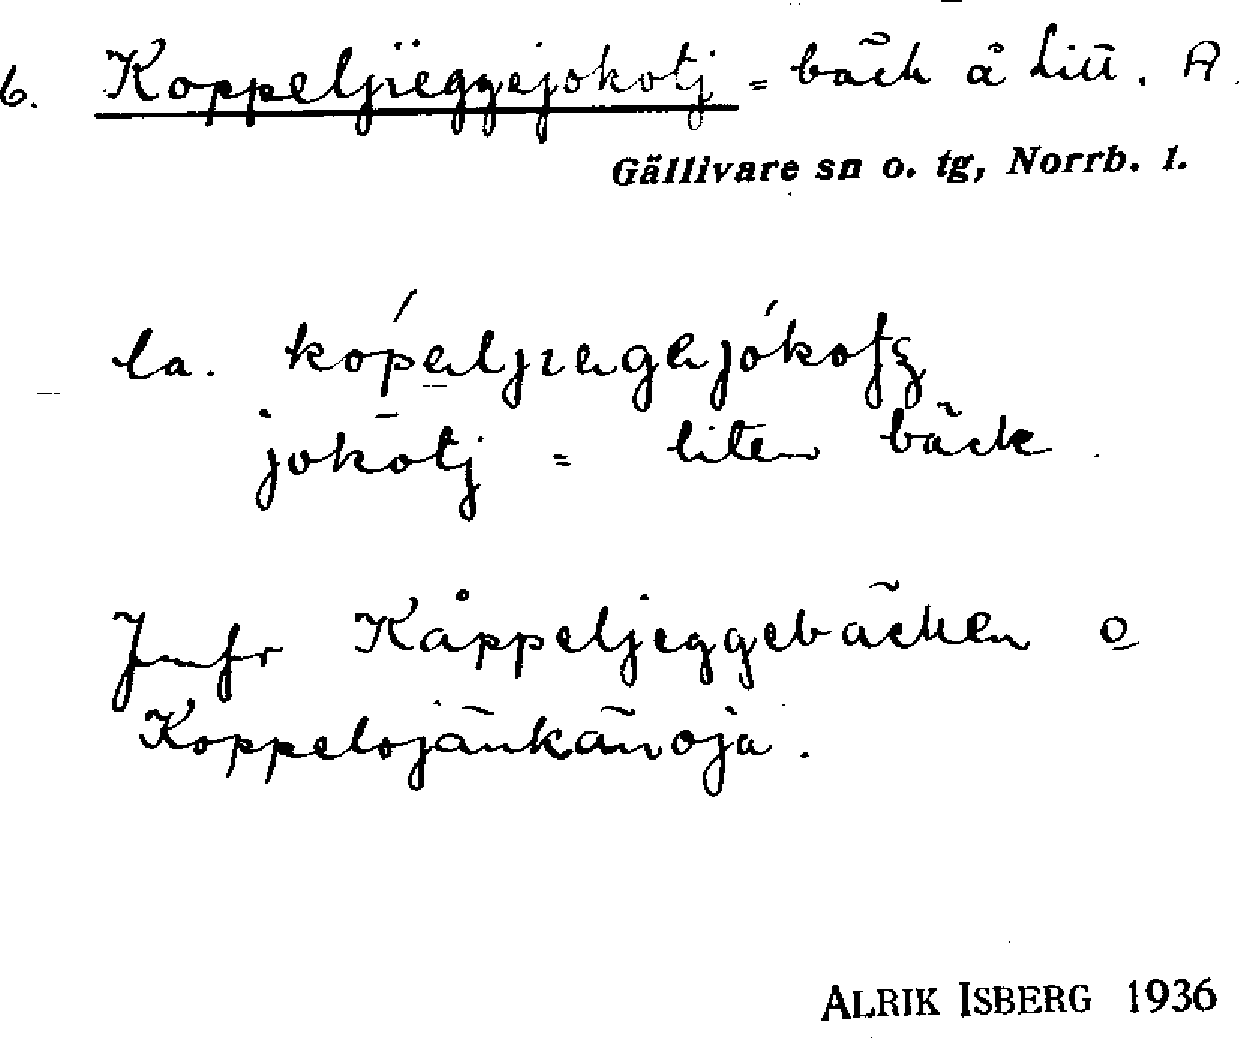 6. Koppeljieggejokotj = bäck å Litt. A.
Gällivare sn o. tg, Norrb. l.
la.
jokotj = liten bäck.
Jmfr Kåppeljeggebäcken o
Koppelojänkänoja.
ALRIK ISBERG 1936